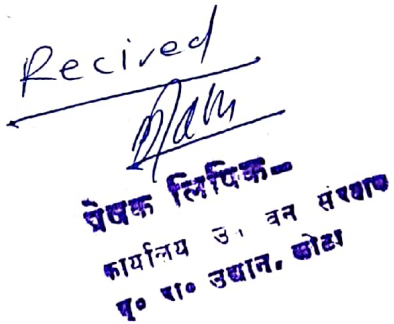 Recived
प्रेषक लिपिक-
कार्यालय उ. वन संरक्षक
मु० रा० उद्यान, कोटा